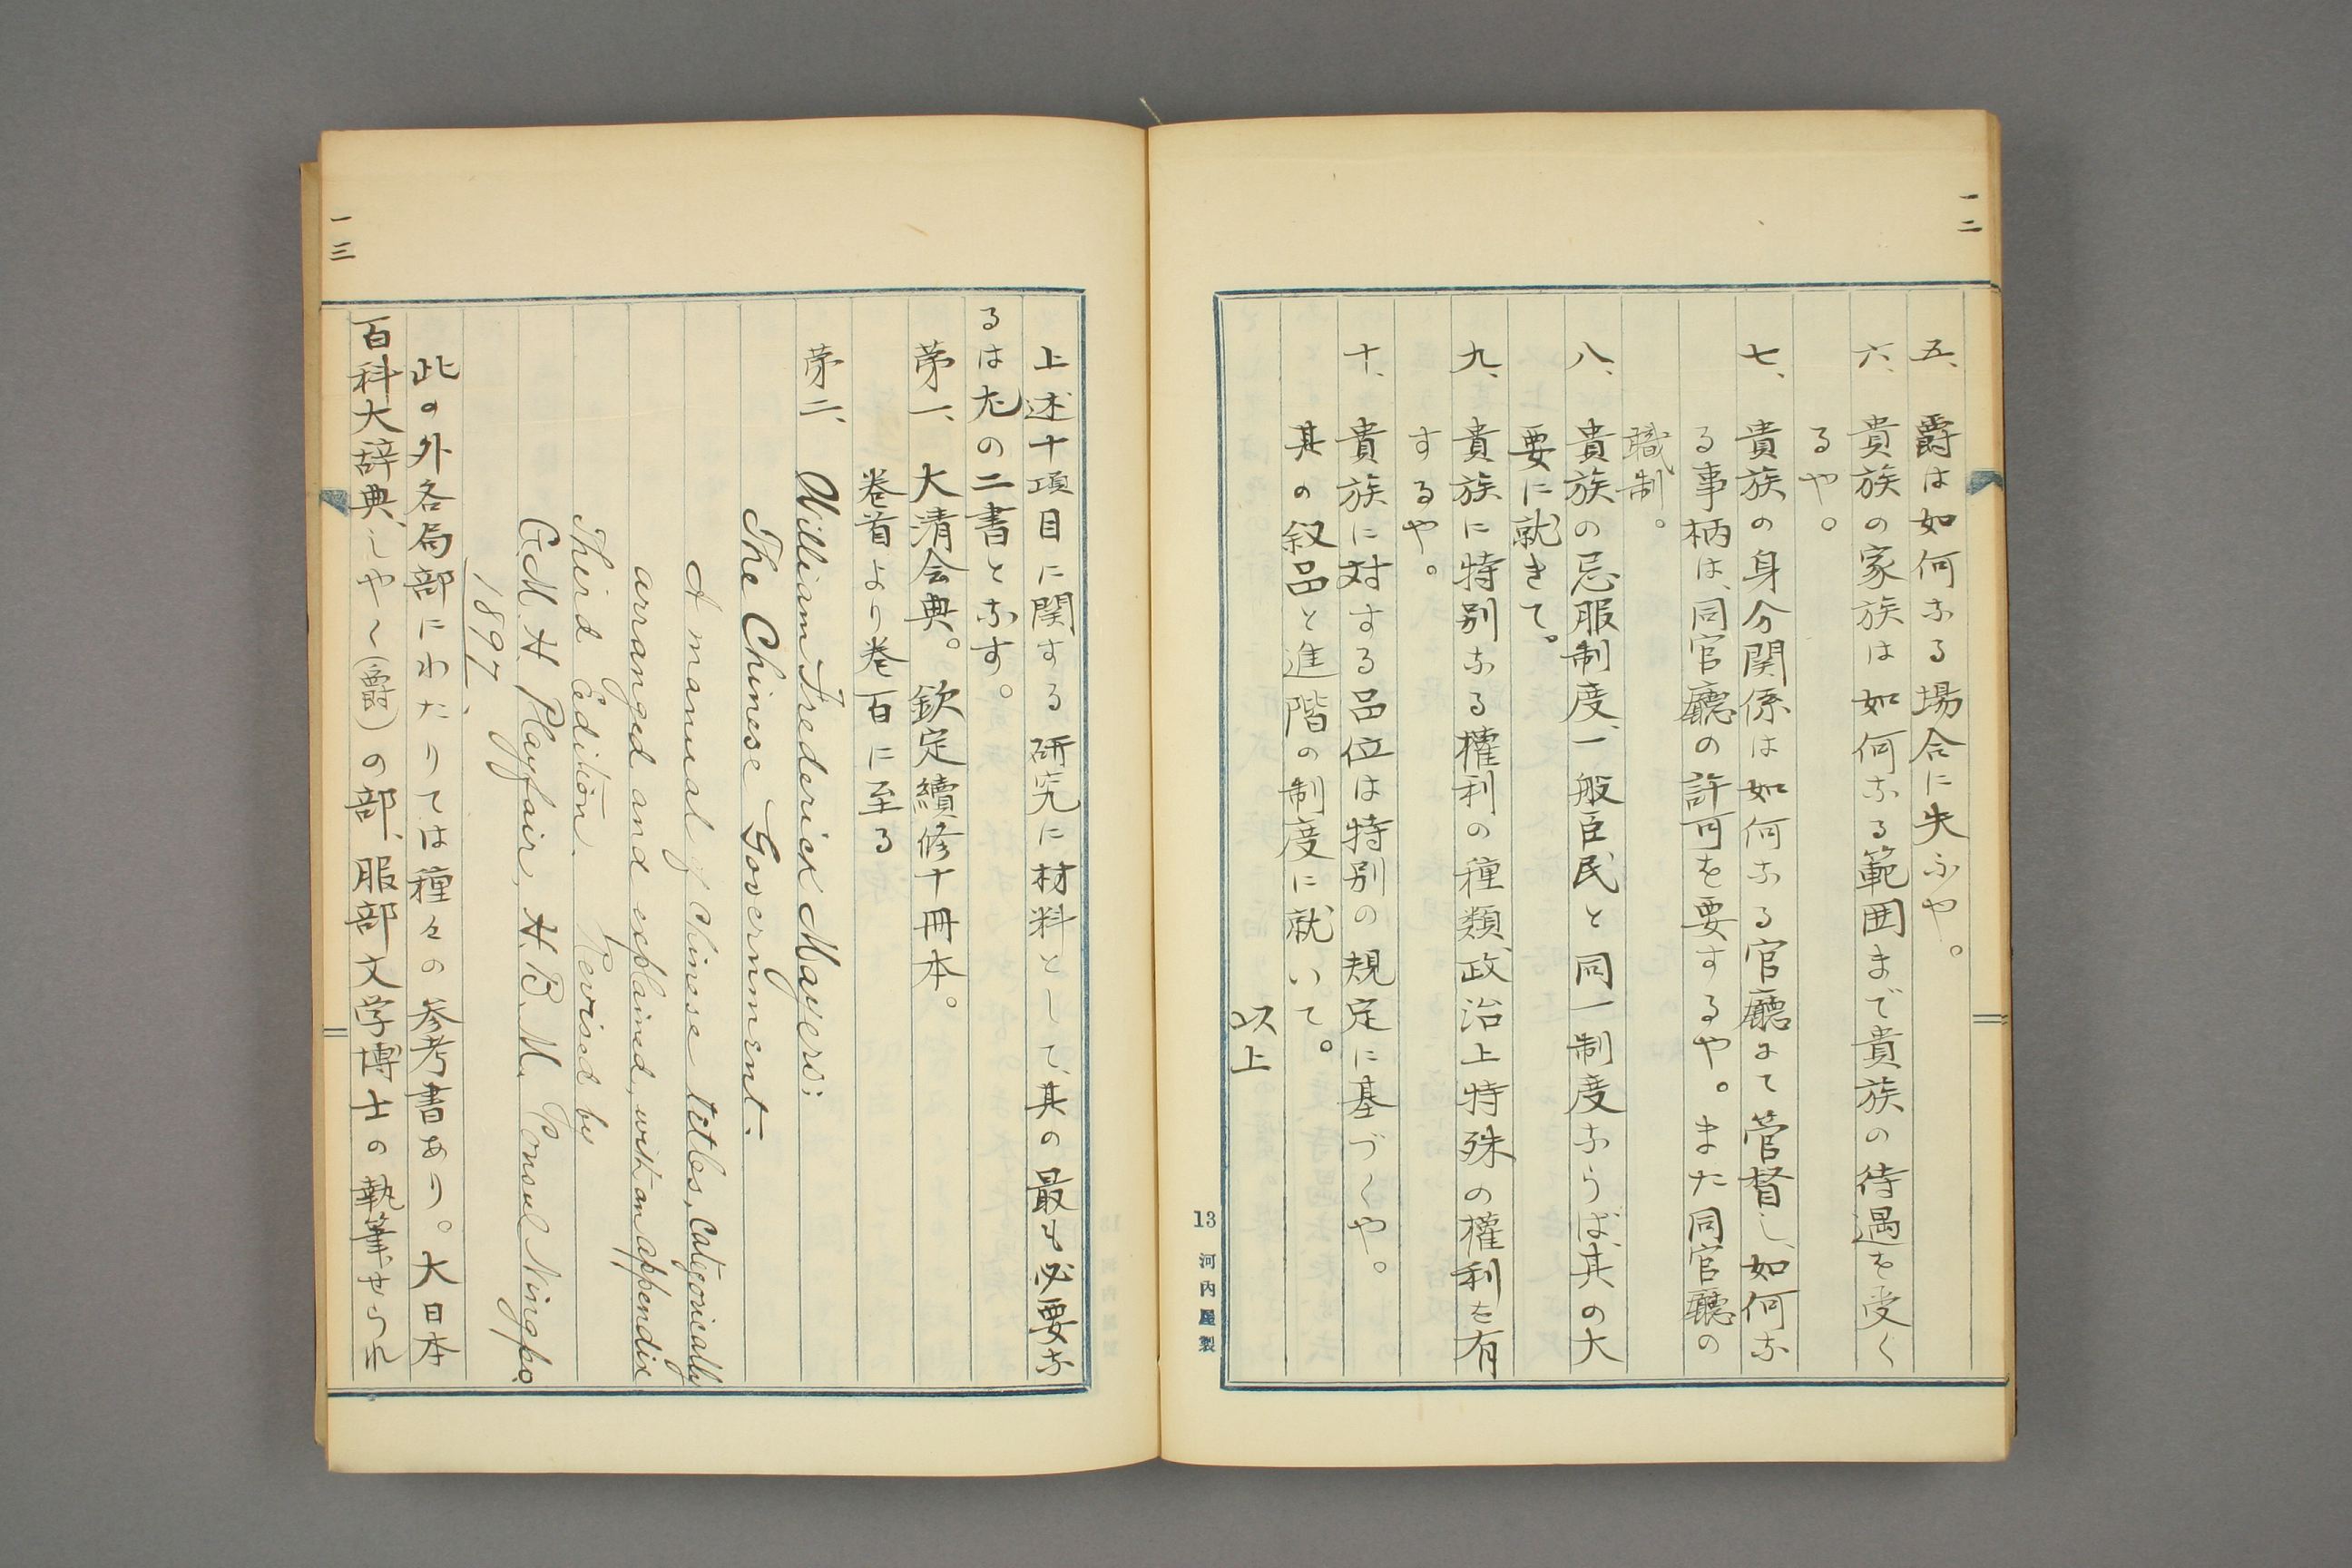 一二
五、爵は如何なる場合に失ふや。
六、貴族の家族は如何なる範囲まで貴族の待遇を受く
るや。
七、貴族の身分関係は如何なる官廳にて管督し、如何な
る事柄は、同官廳の許可を要するや。また同官廳の
職制。
八、貴族の忌服制度、一般臣民と同一制度ならば、其の大
要に就きて。
九、貴族に特別なる權利の種類、政治上特殊の權利を有
するや。
十、貴族に対する品位は特別の規定に基づくや。
其の叙品と進階の制度に就いて。
以上
13 河内屋製
一三
上述十項目に関する研究に材料として、其の最も必要な
るは左の二書となす。
第一、大清会典。欽定續修十冊本。
巻首より巻百に至る
第二、William Frederick Mayers:
The Chinese Government.
A manual of Chinese titles, Categorically
arranged and explained, with an appendix
Third Edition. Revised by
G.M.H. Playfair, H.B.M. Consul Ningpo.
1897.
此の外各局部にわたりては種々の参考書あり。大日本
百科大辞典、しやく(爵)の部、服部文学博士の執筆せられ